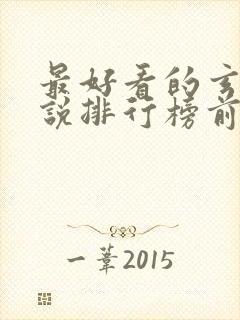 最好看的玄
说排行榜前
一苇2015